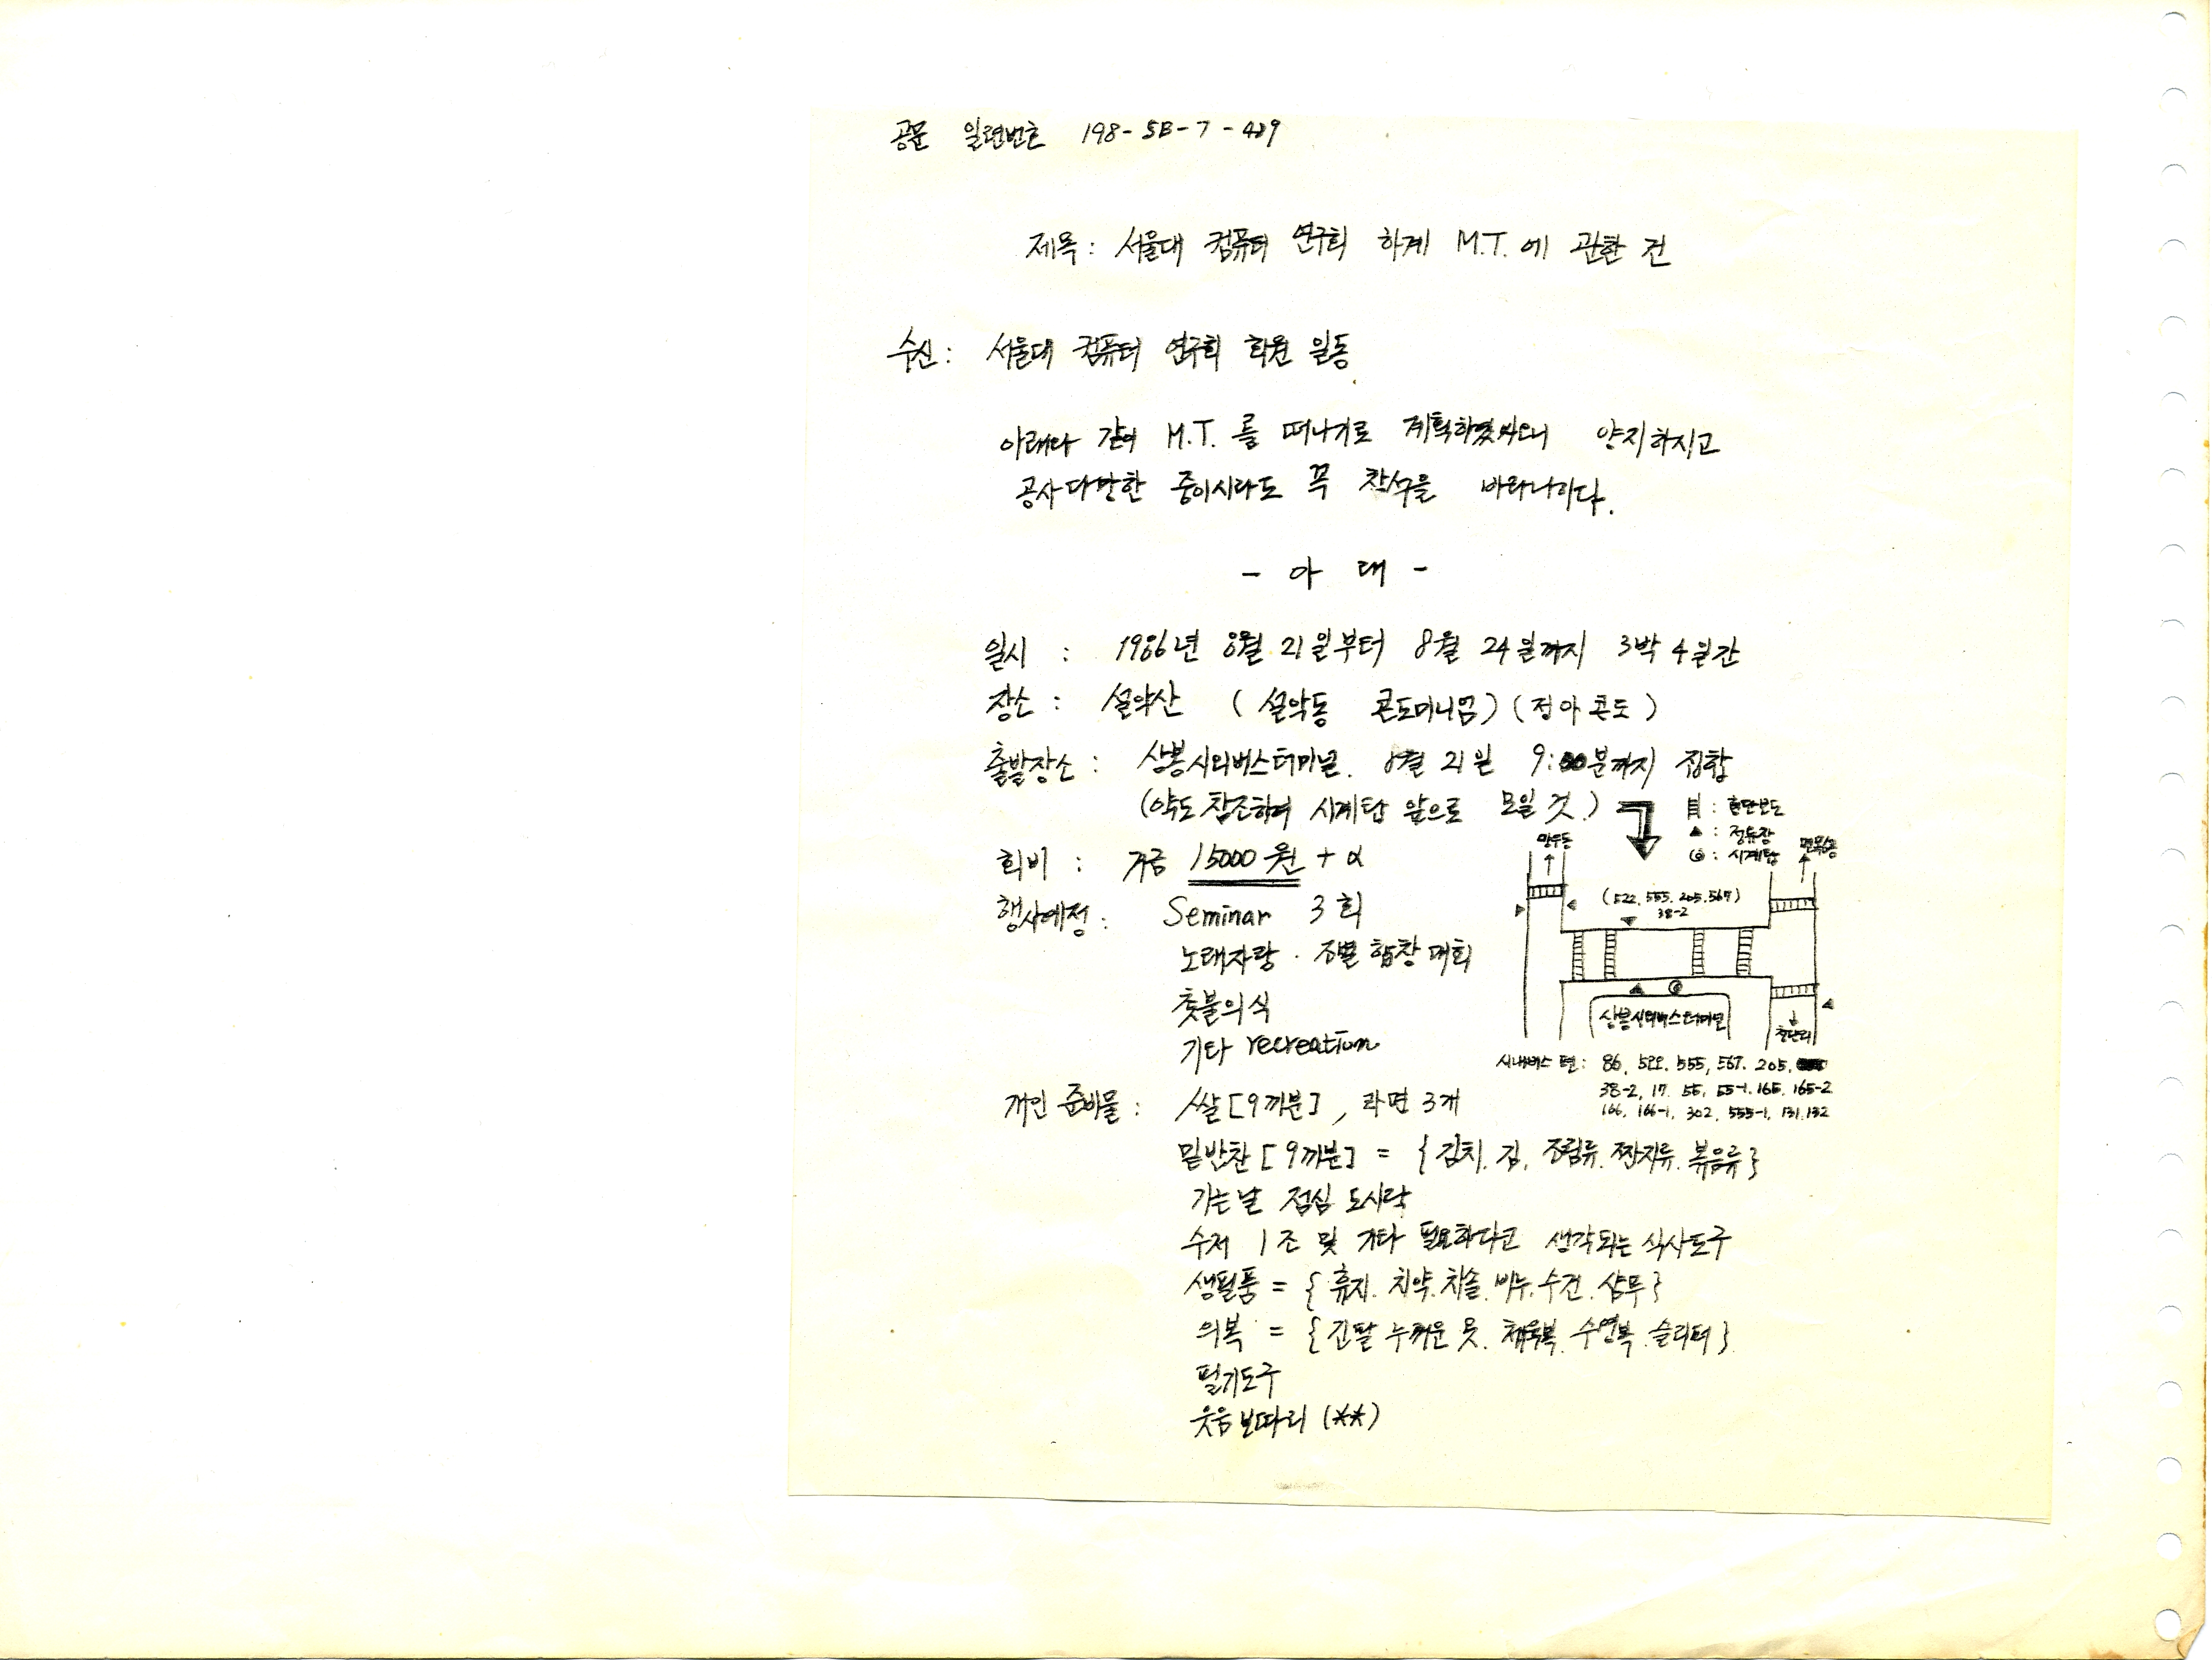 공문 일련번호 198-5B-7-429
제목: 서울대 컴퓨터 연구회 하계 M.T.에 관한 건
수신: 서울대 컴퓨터 연구회 회원 일동
아래와 같이 M.T.를 떠나기로 계획하였사오니 양지하시고
공사다망한 중이시라도 꼭 참석을 바랍니다.
- 아 래 -
일시 : 1986년 8월 21일부터 8월 24일까지 3박 4일간
장소 : 설악산 (설악동 콘도미니엄) (정아콘도)
출발장소 : 상봉시외버스터미널. 8월 21일 9:00분까지 집합
(약도 참조하여 시계탑 앞으로 모일 것.)
회비 : 거금 15000원 + α
행사예정 : Seminar 3회
노래자랑 · 조별 합창대회
촛불의식
기타 recreation
: 횡단보도
▲ : 정류장
◎ : 시계탑
망우동
면목동
(522, 555, 205, 567)
38-2
상봉시외버스터미널
청량리
시내버스 편 : 86, 522, 555, 567, 205,
38-2, 17, 55, 55-1, 165, 165-2
166, 166-1, 302, 555-1, 131, 132
개인 준비물 : 쌀[9끼분], 라면 3개
밑반찬[9끼분] = {김치, 김, 조림류, 짠지류, 볶음류}
가는날 점심 도시락
수저 1조 및 기타 필요하다고 생각되는 식사도구
생필품 = {휴지, 치약, 치솔, 비누, 수건, 샴푸}
의복 = {긴팔 두꺼운 옷, 체육복, 수영복, 슬리퍼}
필기도구
웃음보따리 (**)